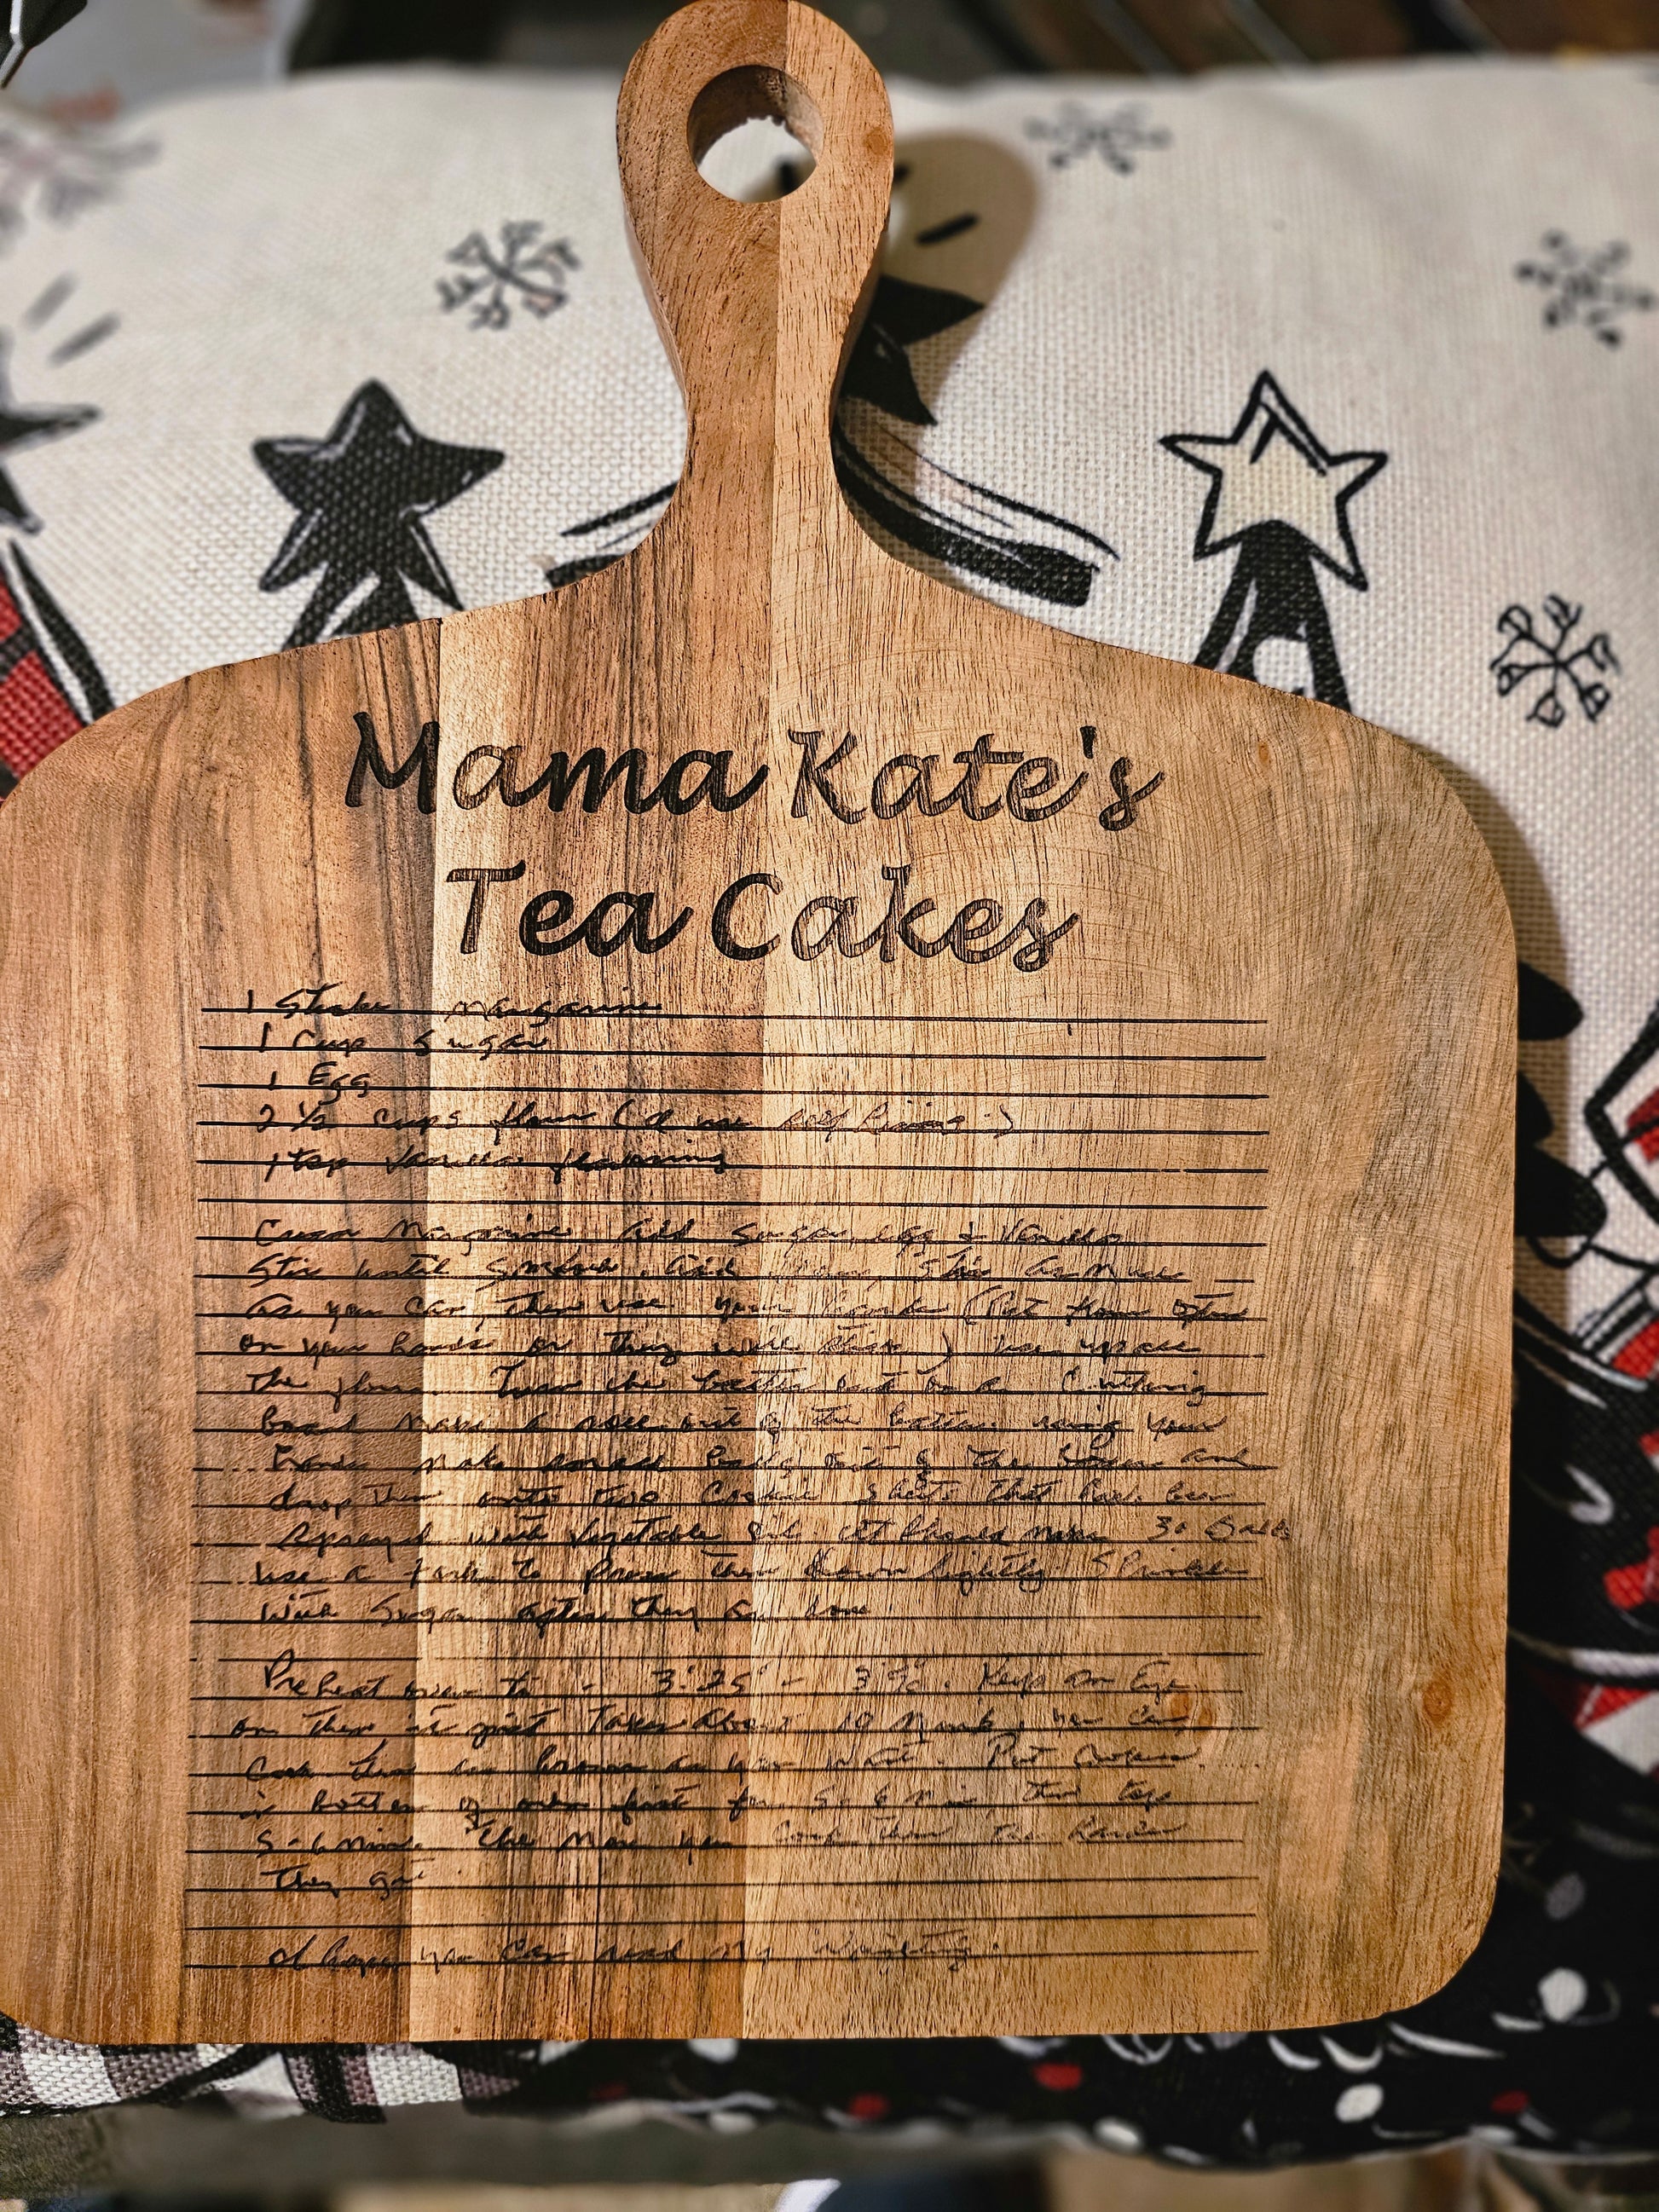 Mama Kate's
Tea Cakes
1 Stick Margarine
1 Cup Sugar
1 Egg
2 1/2 cups flour (I use self Rising)
1 tsp Vanilla flavoring
Cream Margarine add Sugar, egg & Vanilla
Stir until Smooth. Add flour, Stir as much
as you can, then use your hands (Put flour
on your hands or they will stick) use up all
the flour. Turn the batter out on a Cutting
board make a roll out of the batter using your
hands make small balls out of the and
drop them onto two Cookie Sheets that have been
Sprayed with Vegetable Oil. It should make 30 Balls
use a fork to press them down lightly. Sprinkle
with Sugar after they are done
Pre heat oven to - 325 - Keep an Eye
on them at first Takes about 10 you can
Cook them as brown as you want. Put
in bottom of oven first for 5-6 Min then top
5-6 mins. The More you Cook them the harder
They get.
I hope you can read my writing.